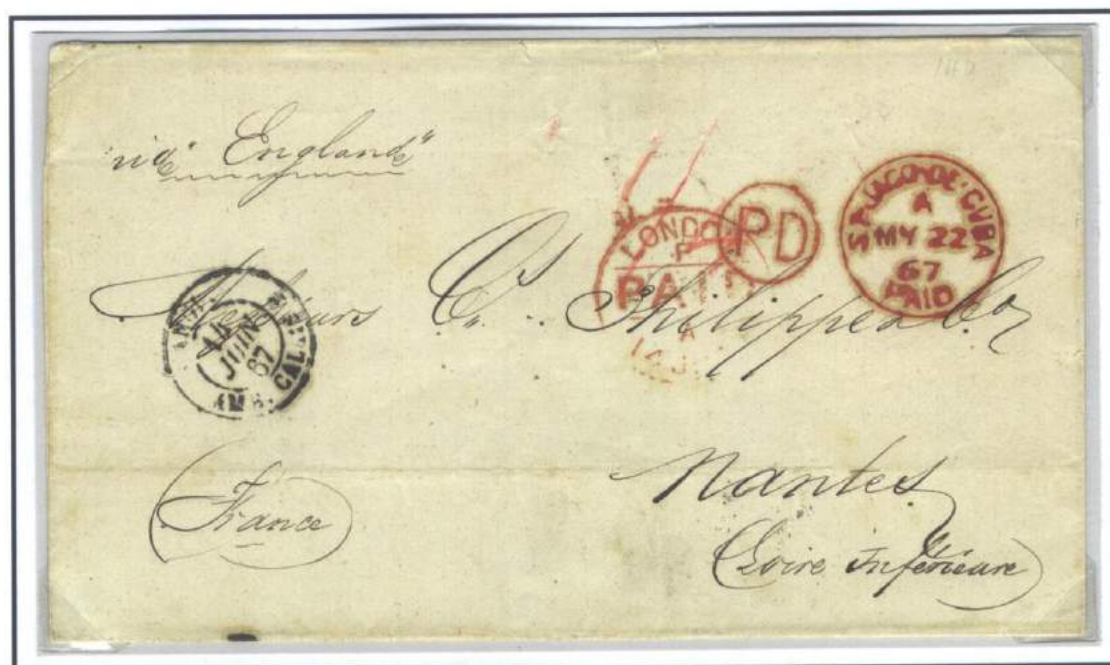 via "England"
LONDON
PAID
PD
ST JAGO-DE-CUBA
A
MY 22
67
PAID
Messieurs C. Philippe & Co
14
JUIN
67
AMB. CALAIS
France
Nantes
Loire Inférieure